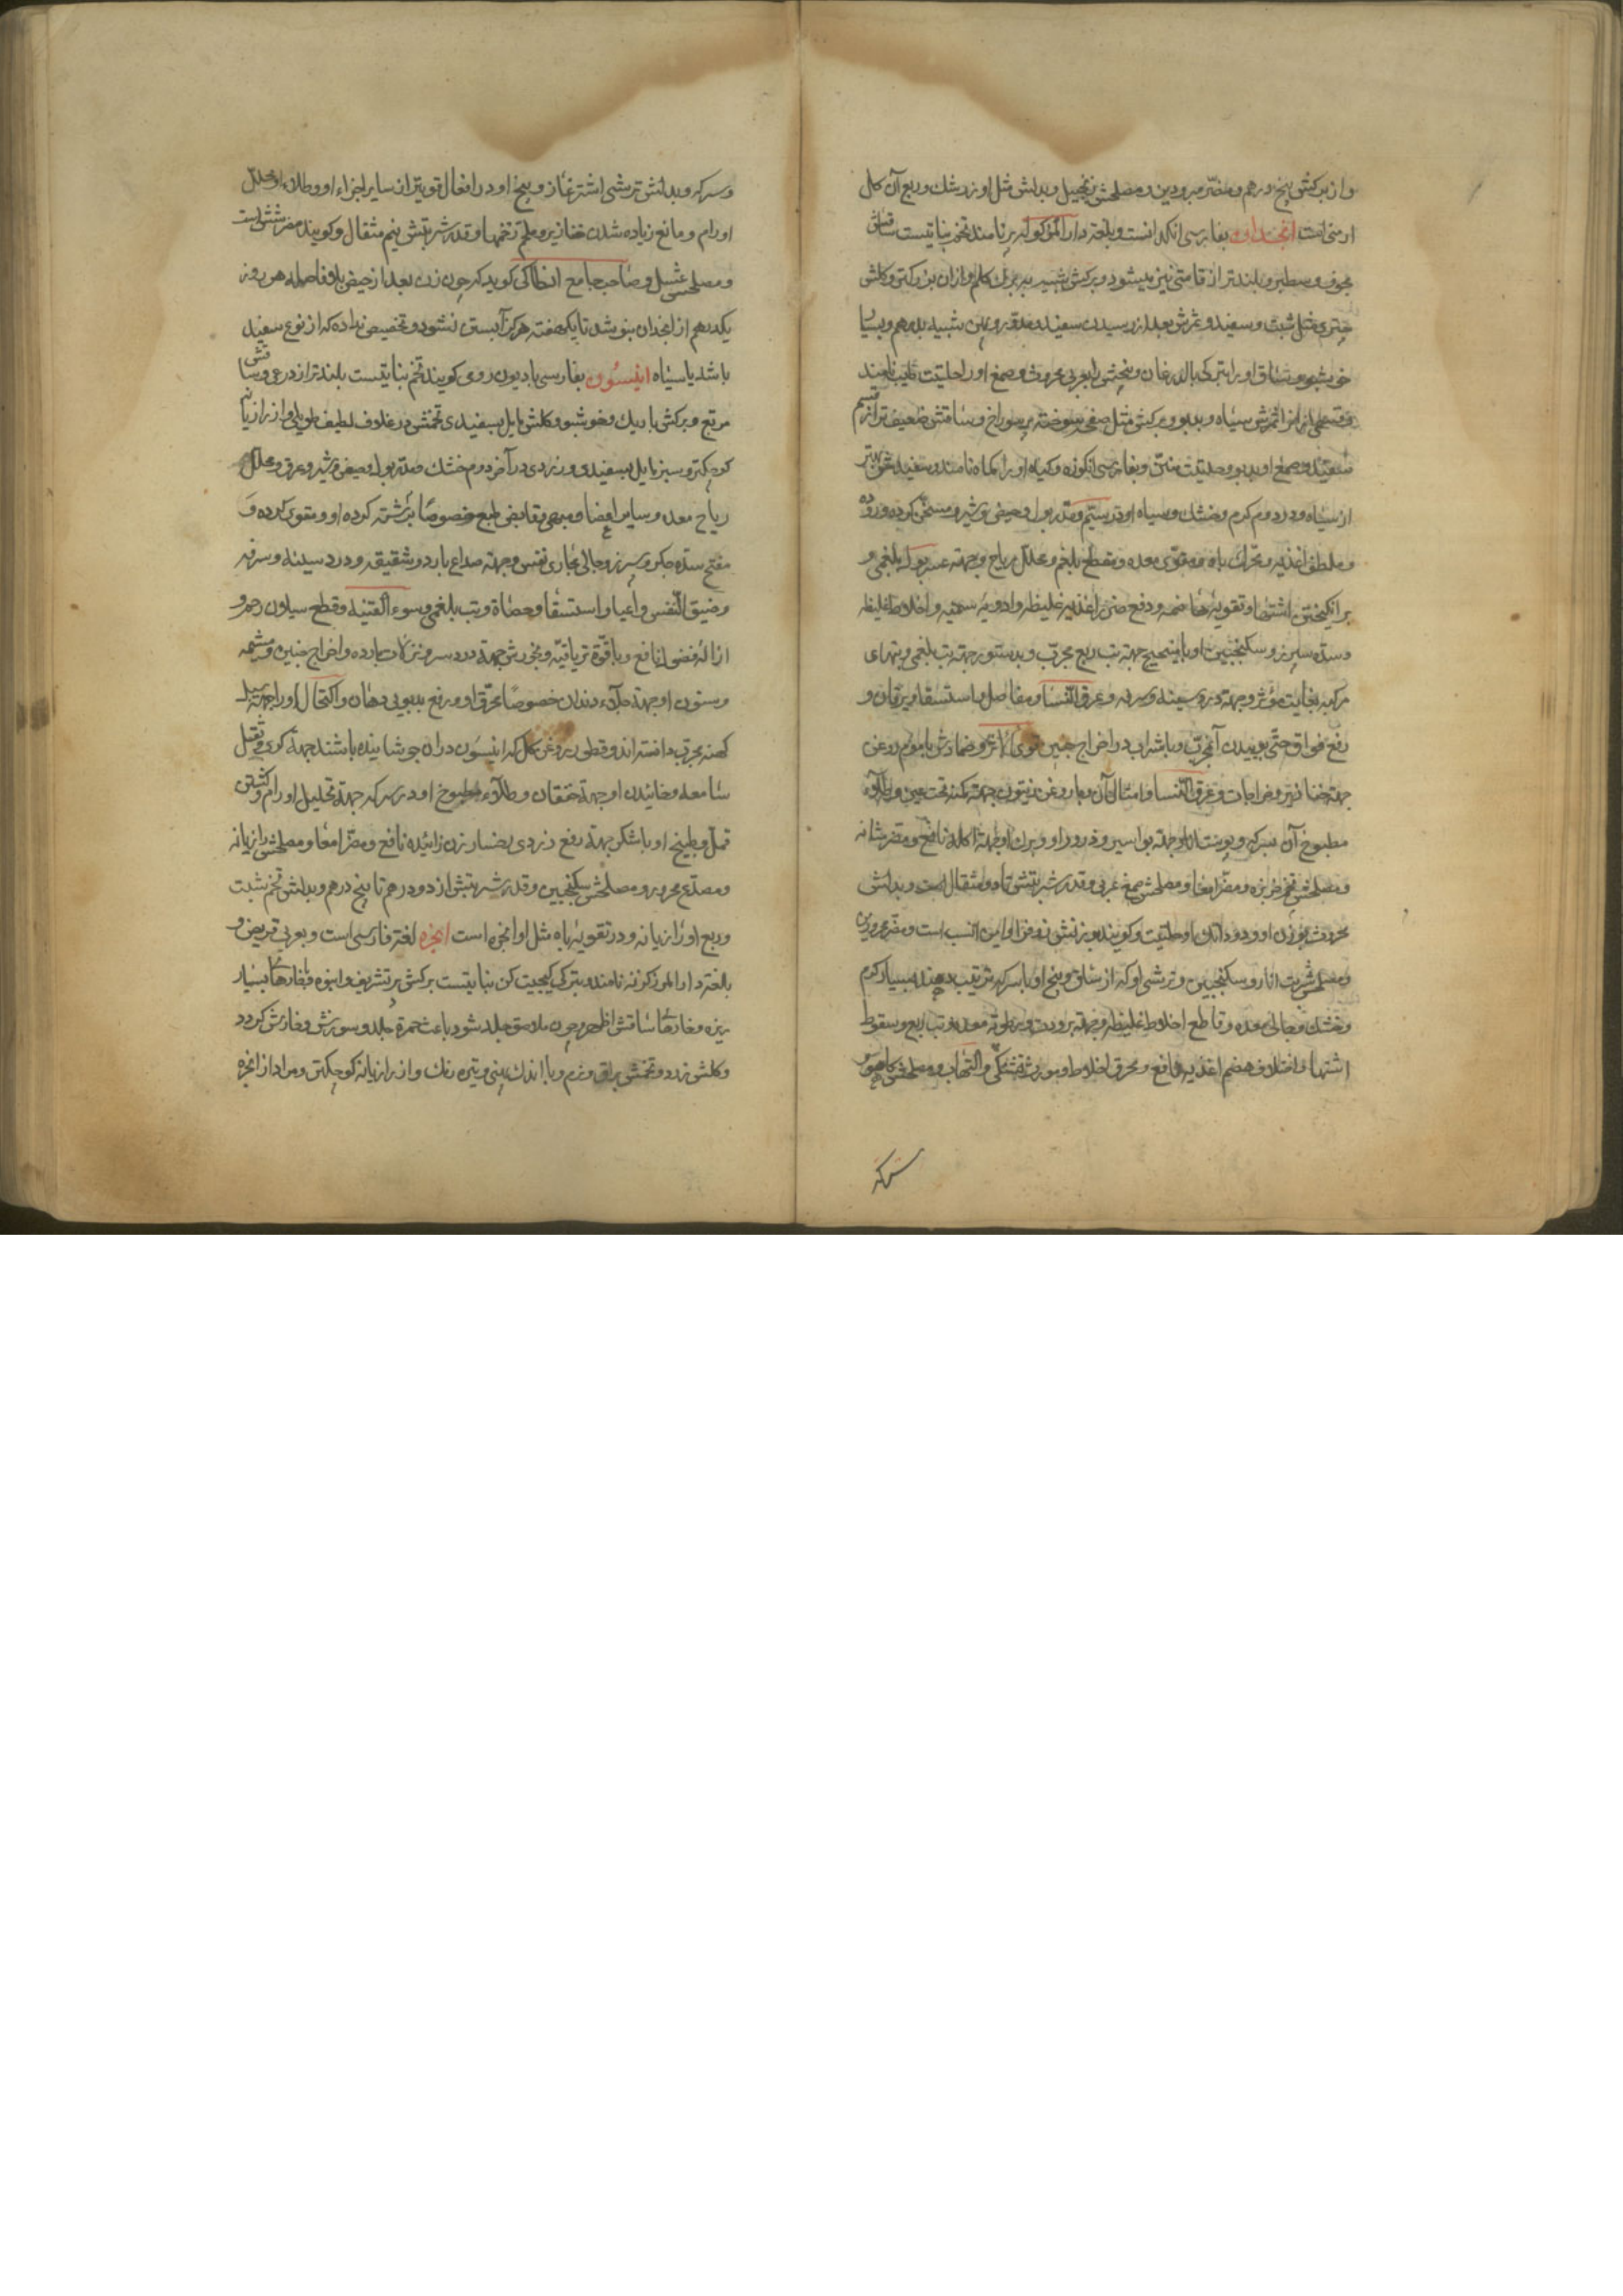 و از برکش پنج درهم و مضر مبرودین و مصلحش زنجبیل و بدلش مثل او زرشک و ربع آن کل
ارمنی است انجدان بفارسی انکدانست و بلغة دارالمرز کوله پر نامند تخم نباتیست ساقش
مجوف و سطبر و بلندتر از قامتی نیز میشود و برکش شبیه ببرک کلم و ازان بزرکتر و کلش
چتری مثل شبت و سفید و ثمرش بعد از رسیدن سفید و مدور و پهن شبیه بدرهم و بسیار
خوشبو و ساق او را بترکی بالدرغان و بیخش را بعربی محروث و صمغ او را حلتیت طیب نامند
و قسمی از او ثمرش سیاه و بدبو و برکش مثل صفحه سوخته پر سوراخ و ساقش ضعیف‌تر از قسم
سفید و صمغ او بدبو و حلتیت منتن و بفارسی انکوزه و کیاه او را کماه نامند و سفید خوشبو بهتر
از سیاه و در دوم کرم و خشک و سیاه او در سیم و مدر بول و حیض و شیر و مسخن کرده و روده
و ملطف اغذیه و محرک باه و مقوی معده و مقطع بلغم و محلل ریاح و جهة عسر بول بلغمی و
برانکیختن اشتها و تقویة هاضمه و دفع ضرر اغذیه غلیظه و ادویه سمیه و اخلاط غلیظه
و سده سپرز و سکنجبین او با اینجیح جهة تب ربع مجرب و بدستور جهة تب بلغمی و تبهای
مرکبه بغایت مؤثر و جهة درد سینه و سرفه و عرق النسا و مفاصل و استسقا و یرقان و
رفع فواق حتی بوییدن آن مجرب و با شراب در اخراج جنین قوی الاثر و ضمادش با موم روغن
جهة خنازیر و خراجات و عرق النسا و امثال آن و با روغن زیتون جهة کمنه تحت عین و طلاء
مطبوخ آن بسرکه و پوست انار جهة بواسیر و ذرور او و برک او جهة آکله نافع و مضر مثانه
و مصلحش تخم خربزه و مضر امعا و مصلحش صمغ عربی و قدر شربتش تا دو مثقال است و بدلش
محروث بوزن او و دو دانک او حلتیت و کویند بوزنش زوفرا و این انسب است و مضر محرورین
و مصلحش شربت انار و سکنجبین و ترشی او که از ساق و بیخ او با سرکه ترتیب دهند بسیار کرم
و خشک و جالی معده و قاطع اخلاط غلیظه و جهة برودت و رطوبة معده و تب ربع و سقوط
اشتها و اختلاف هضم اغذیه نافع و محرق اخلاط و مورث تشنکی و التهاب و مصلحش کاهو
سرکه
و سرکه و بدلش ترشی اشترغاز و بیخ او در افعال قویتر از سایر اجزاء او و طلاء او محلل
اورام و مانع زیاده شدن خنازیر و ملحم زخمها و قدر شربتش نیم مثقال و کویند مضر شش است
و مصلحش عسل و صاحب جامع انطاکی کوید که چون زن بعد از حیض بلا فاصله هر روز
یکدرهم از انجدان بنوشد تا یکهفته هرکز آبستن نشود و تخصیص نداده که از نوع سفید
باشد یا سیاه انیسون بفارسی بادیون رومی کویند تخم نباتیست بلندتر از ذرعی و ساقش
مربع و برکش باریک و خوشبو و کلش مایل بسفیدی تخمش در غلاف لطیف طویلی و از رازیانه
کوچکتر و سبز مایل بسفیدی و زردی در آخر دوم خشک مدر بول و حیض و شیر و عرق و محلل
ریاح معده و سایر اعضا و مبهی و قابض طبع خصوصا برشته کرده او و مقوی کرده و
مفتح سده جکر و سپرز و جالی مجاری نفس و جهة صداع بارد و شقیقه و درد سینه و سرفه
و ضیق النفس و اعیا و استسقا و حصاة و تب بلغمی و سوء القنیه و قطع سیلان رحم و
ازاله فضول نافع و با قوة تریاقیه و بخورش جهة درد سر و نزلات بارده و اخراج جنین و مشیمه
و سنون او جهة جلاء دندان خصوصا محرق او و رفع بدبویی دهان و اکتحال او را جهة سبل
کهنه مجرب دانسته‌اند و قطور روغن کل که انیسون دران جوشانیده باشند جهة کری و ثقل
سامعه و خاییدن او جهة خفقان و طلاء مطبوخ او در سرکه جهة تحلیل اورام و کشتن
قمل و طبیخ او با شکر جهة رفع زردی رخسار زن زائیده نافع و مضر امعا و مصلحش رازیانه
و مصدع محرور و مصلحش سکنجبین و قدر شربتش از دو درهم تا پنج درهم و بدلش تخم شبت
و ربع او رازیانه و در تقویة باه مثل او انجره است انجره لغة فارسی است و بعربی قریص و
بلغة دارالمرز کزنه نامند و بترکی کیجیت کن نباتیست برکش پر تشریف و انبوه و خارهای بسیار
ریزه و خارهای ساقش اظهر و چون ملاصق جلد شود باعث حمرة جلد و سوزش و خارش کردد
و کلش زرد و تخمش براق و نرم و با اندک پهنی و تیره رنک و از رازیانه کوچکتر و مراد از انجره